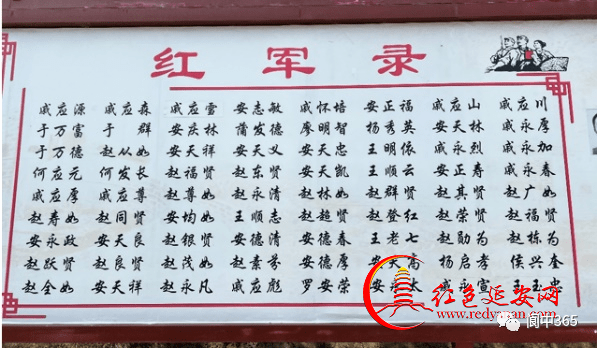 红军录
戚应源 戚应森 戚应雪 安志敏 戚怀培 安正福 戚应山 戚应川
于万富 于群 安庆林 蒲发德 廖明智 杨秀英 安天林 戚永厚
于万德 赵从如 安天祥 安天义 安天忠 王明依 戚永烈 戚永加
何应元 何发长 赵福贤 赵东贤 安天凯 王顺云 安正寿 戚永春
戚应厚 戚应尊 赵尊如 赵永清 赵林如 赵群贤 赵其贤 赵广如
赵寿如 赵同贤 安均如 王顺志 赵超贤 赵登红 赵荣贤 赵福贤
安永政 安天良 赵银贤 安德清 安德春 王老七 赵勋为 赵栋为
赵跃贤 赵良贤 赵茂如 赵素芬 安德厚 安天高 杨启孝 侯兴奎
赵全如 安天祥 赵永凡 戚应彪 罗安荣 安 太 戚永宣 王玉忠
红色延安网
www.redyanan.com
阆中365